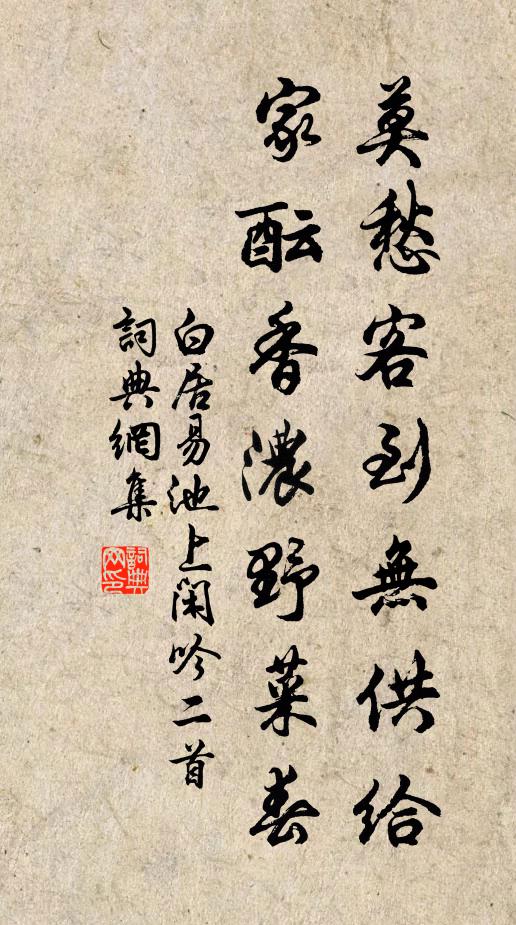 莫愁客到無供給
家醞香濃野菜春
白居易池上閑吟二首
詞典網集
詞典网印